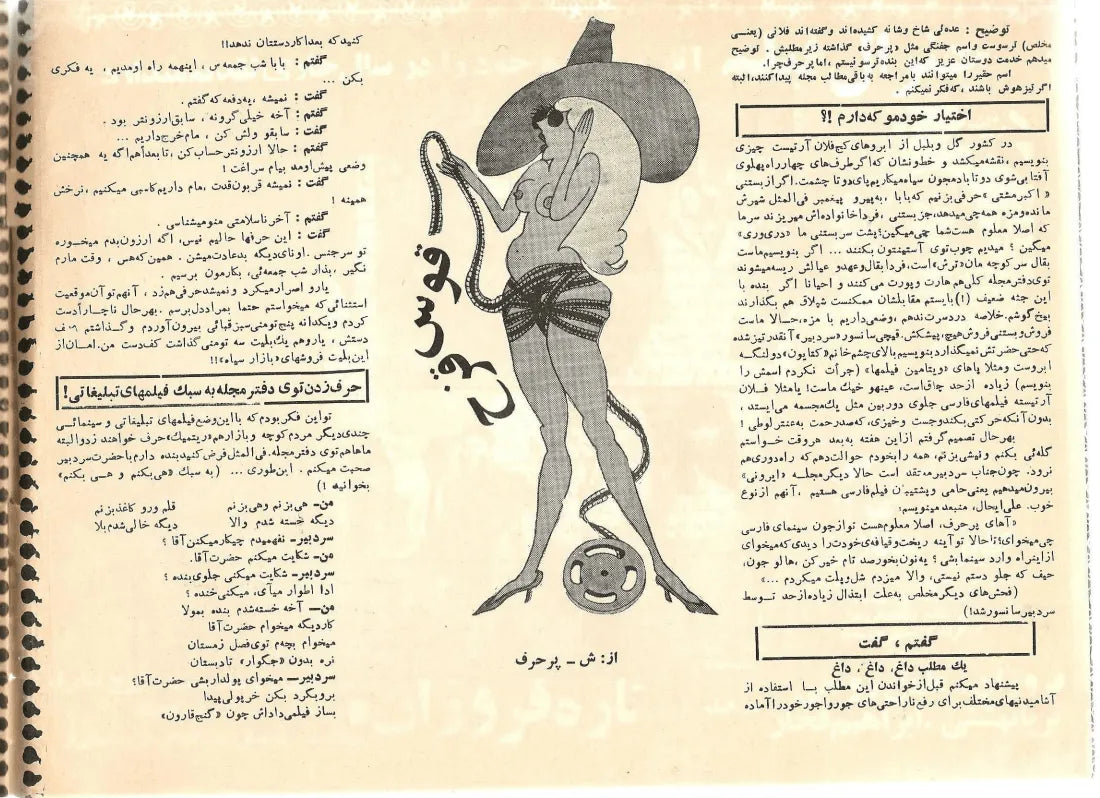 توضیح : عده‌ئی شاخ و شانه کشیده‌اند و گفته‌اند فلانی (یعنی
مخلص) ترسوست و اسم جفنگی مثل «پرحرف» گذاشته زیر مطلبش . توضیح
میدهم خدمت دوستان عزیز که این بنده ترسو نیستم ، اما پرحرف چرا.
اسم حقیر را میتوانند با مراجعه به باقی مطالب مجله پیدا کنند، البته
اگر تیزهوش باشند ، که فکر نمیکنم .
اختیار خودمو که دارم !؟
در کشور گل و بلبل از ابروهای کج فلان آرتیست چیزی
بنویسیم ، نقشه میکشد و خط و نشان که اگر طرف‌های چهارراه پهلوی
آفتابی شوی دو تا بادمجون سیاه میکاریم پای دو تا چشمت. اگر از بستنی
«اکبر مشتی» حرفی بزنیم که بابا ، به پیر و پیغمبر فی‌المثل شیرش
مانده و مزه همه چی میدهد، جز بستنی ، فردا خانواده‌اش میریزند سرما
که اصلا معلوم هست شما چی میگین؟ پشت سر بستنی ما «دری‌وری»
میگین ؟ میدیم چوب توی آستینتون بکنند ... اگر بنویسیم ماست
بقال سر کوچه مان «ترش» است، فردا بقال و عهد و عیالش ریسه میشوند
توی دفتر مجله کلی هم هارت و پورت می کنند و احیانا اگر بنده با
این جثه ضعیف (!) بایستم مقابلشان ممکنست شیلاق هم بگذارند
بیخ گوشم. خلاصه دردسرت ندهم ، وضعی داریم با مزه، حالا ماست
فروش و بستنی فروش هیچ، پیشکش. قیچی سانسور «سردبیر» آنقدر تیز شده
که حتی حضرتش نمیگذارد بنویسیم بالای چشم خانم «کتایون» دو لنگه
ابروست و مثلا پاهای «ویتامین فیلمها» (جرأت نکردم اسمش را
بنویسم) زیاده از حد چاق است، عینهو خیك ماست! یا مثلا فلان
آرتیسته فیلمهای فارسی جلوی دوربین مثل یك مجسمه می‌ایستد ،
بدون آنکه حرکتی بکند و جست و خیزی، که صد رحمت به عنتر لوطی !
بهر حال تصمیم گرفتم از این هفته به بعد هر وقت خواستم
گله‌ئی بکنم و نیشی بزنم، همه را بخودم حوالت دهم که راه دوری هم
نرود. چون جناب سردبیر معتقد است حالا دیگر مجله «ایرونی»
بیرون میدهیم یعنی حامی و پشتیبان فیلم فارسی هستیم ، آنهم از نوع
خوب. علی‌ایحال، منبعد مینویسم:
«آهای پرحرف، اصلا معلوم هست تو از جون سینمای فارسی
چی میخوای؟ تا حالا تو آینه ریخت و قیافه‌ی خودت را دیدی که میخوای
از این راه وارد سینما بشی ؟ یه نون بخور صد تام خیر کن ، هالو جون،
حیف که جلو دستم نیستی، والا میزدم شل و پلت میکردم ...»
(فحش‌های دیگر مخلص به علت ابتذال زیاده از حد توسط
سردبیر سانسور شد!)
گفتم ، گفت
یك مطلب داغ، داغ ، داغ
پیشنهاد میکنم قبل از خواندن این مطلب بــا استفاده از
آشامیدنیهای مختلف برای رفع ناراحتی‌های جور واجور خود را آماده
قوس قزح
از: ش ــ پرحرف
کنید که بعدا کار دستتان ندهد!!
گفتم : بابا شب جمعه‌س ، اینهمه راه اومدیم ، یه فکری
بکن ...
گفت : نمیشه ، یه دفعه که گفتم .
گفتم : آخه خیلی گرونه ، سابق ارزونتر بود .
گفت : سابقو ولش کن ، مام خرج داریم ...
گفتم : حالا ارزونتر حساب کن ، تا بعدا هم اگه یه همچنین
وضعی پیش اومد بیام سراغت !
گفت : نمیشه قربون قدت ، مام داریم کاسبی میکنیم ، نرخش
همینه !
گفتم : آخر ناسلامتی منو میشناسی .
گفت : این حرفها حالیم نیس، اگه ارزون بدم میخـوره
تو سر جنس. اونای دیگه بد عادت میشن . همین که هس ، وقت مارم
نگیر ، بذار شب جمعه‌ئی، بکارمون برسیم .
یارو اصرار میکرد و نمیشد حرفی هم زد ، آنهم تو آن موقعیت
استثنائی که میخواستم حتما بمراد دل برسم. بهر حال ناچـار دست
کردم و یکدانه پنج تومنی سبز قبائی بیرون آوردم و گذاشتم کف
دستش ، یارو هم یك بلیت سه تومنی گذاشت کف دست من. امان از
این بلیت فروشهای «بازار سیاه»!!
حرف زدن توی دفتر مجله به سبك فیلمهای تبلیغاتی!
تو این فکر بودم که با این وضع فیلمهای تبلیغاتی و سینمائی
چندی دیگر مردم کوچه و بازار هم «ریتمیك» حرف خواهند زد و البته
ماها هم توی دفتر مجله. فی‌المثل فرض کنید بنده دارم با حضرت سردبیر
صحبت میکنم . این طوری ... (به سبك «هی بکنم و هـی بکنم»
بخوانید !)
من- هی بزنم و هی بزنم قلم و رو کاغذ بزنم
دیگه خسته شدم والا دیگه خالی شدم بلا
سردبیر- نفهمیدم چیکار میکنن آقا ؟
من- شکایت میکنم حضرت آقا.
سردبیر- شکایت میکنی جلوی بنده ؟
ادا اطوار میآی، میکنی خنده ؟
من- آخه خسته شدم بنده بمولا
کار دیگه میخوام حضرت آقا
میخوام بچه‌م توی فصل زمستان
نره بدون «جگوار» تا دبستان
سردبیر- میخوای پولدار بشی حضرت آقا؟
برو بگرد بکن خرپولی پیدا
بساز فیلمی داداش چون «گنج قارون»